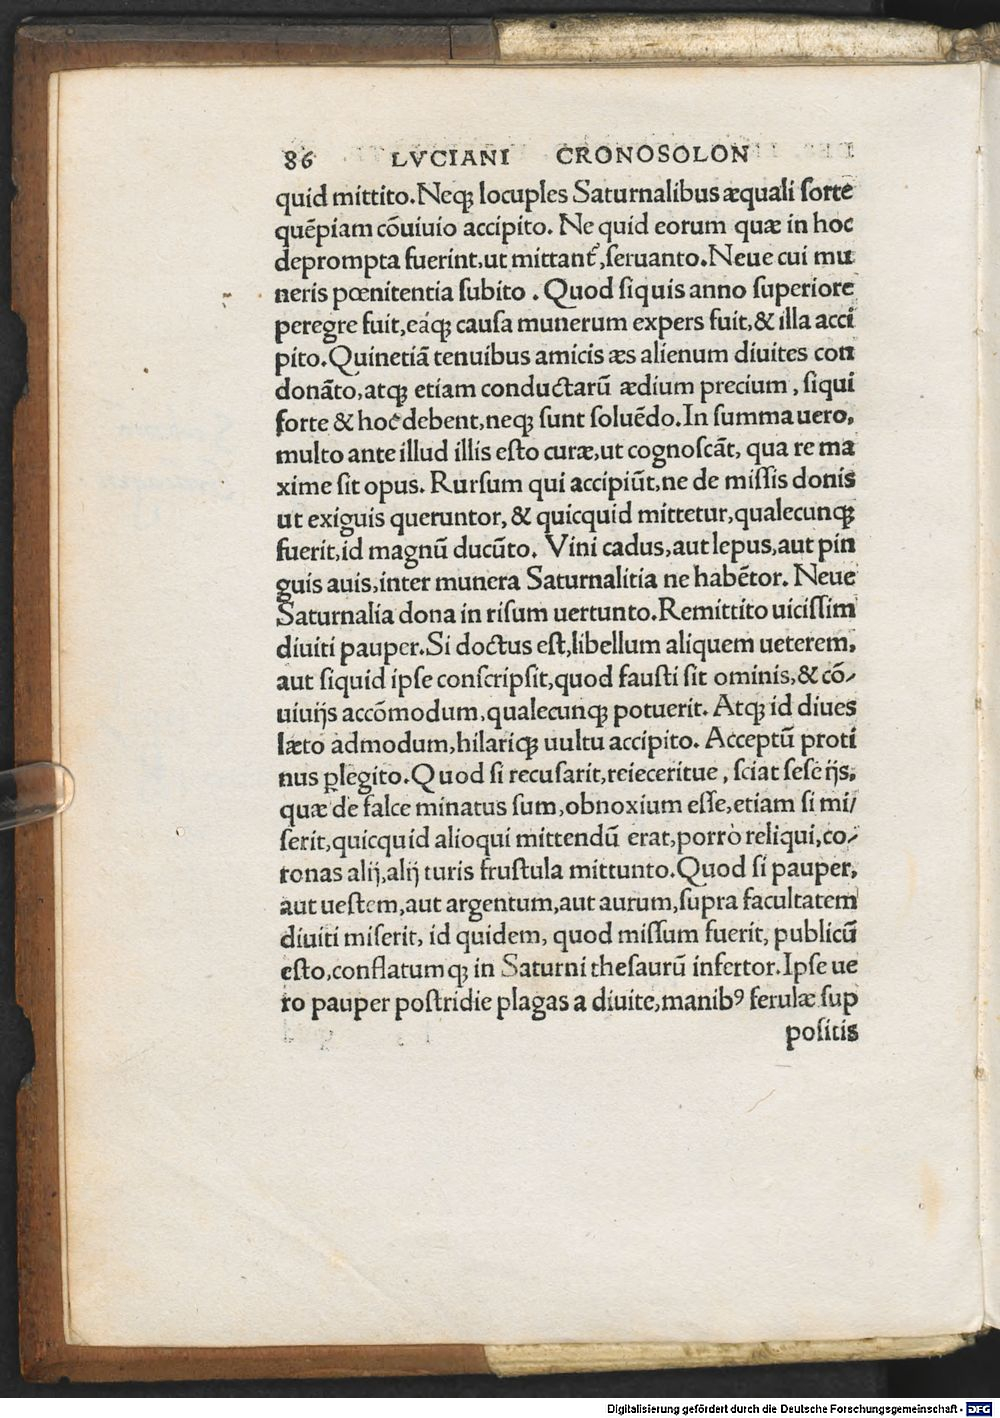 86 LVCIANI CRONOSOLON
quid mittito. Neqꝫ locuples Saturnalibus æquali sorte
quēpiam cōuiuio accipito. Ne quid eorum quæ in hoc
deprompta fuerint, ut mittant᷑, seruanto. Neue cui mu
neris pœnitentia subito. Quod siquis anno superiore
peregre fuit, eáqꝫ causa munerum expers fuit, & illa acci
pito. Quinetiā tenuibus amicis æs alienum diuites con
donāto, atqꝫ etiam conductarū ædium precium, siqui
forte & hoc debent, neqꝫ sunt soluēdo. In summa uero,
multo ante illud illis esto curæ, ut cognoscāt, qua re ma
xime sit opus. Rursum qui accipiūt, ne de missis donis
ut exiguis queruntor, & quicquid mittetur, qualecunqꝫ
fuerit, id magnū ducūto. Vini cadus, aut lepus, aut pin
guis auis, inter munera Saturnalitia ne habētor. Neue
Saturnalia dona in risum uertunto. Remittito uicissim
diuiti pauper. Si doctus est, libellum aliquem ueterem,
aut siquid ipse conscripsit, quod fausti sit ominis, & cō/
uiuijs accōmodum, qualecunqꝫ potuerit. Atqꝫ id diues
læto admodum, hilariqꝫ uultu accipito. Acceptū proti
nus ꝑlegito. Quod si recusarit, reieceritue, sciat sese ijs,
quæ de falce minatus sum, obnoxium esse, etiam si mi/
serit, quicquid alioqui mittendū erat, porrò reliqui, co/
ronas alij, alij turis frustula mittunto. Quod si pauper,
aut uestem, aut argentum, aut aurum, supra facultatem
diuiti miserit, id quidem, quod missum fuerit, publicū
esto, conflatumqꝫ in Saturni thesaurū infertor. Ipse ue
ro pauper postridie plagas a diuite, manibꝰ ferulæ sup
positis
Digitalisierung gefördert durch die Deutsche Forschungsgemeinschaft - DFG